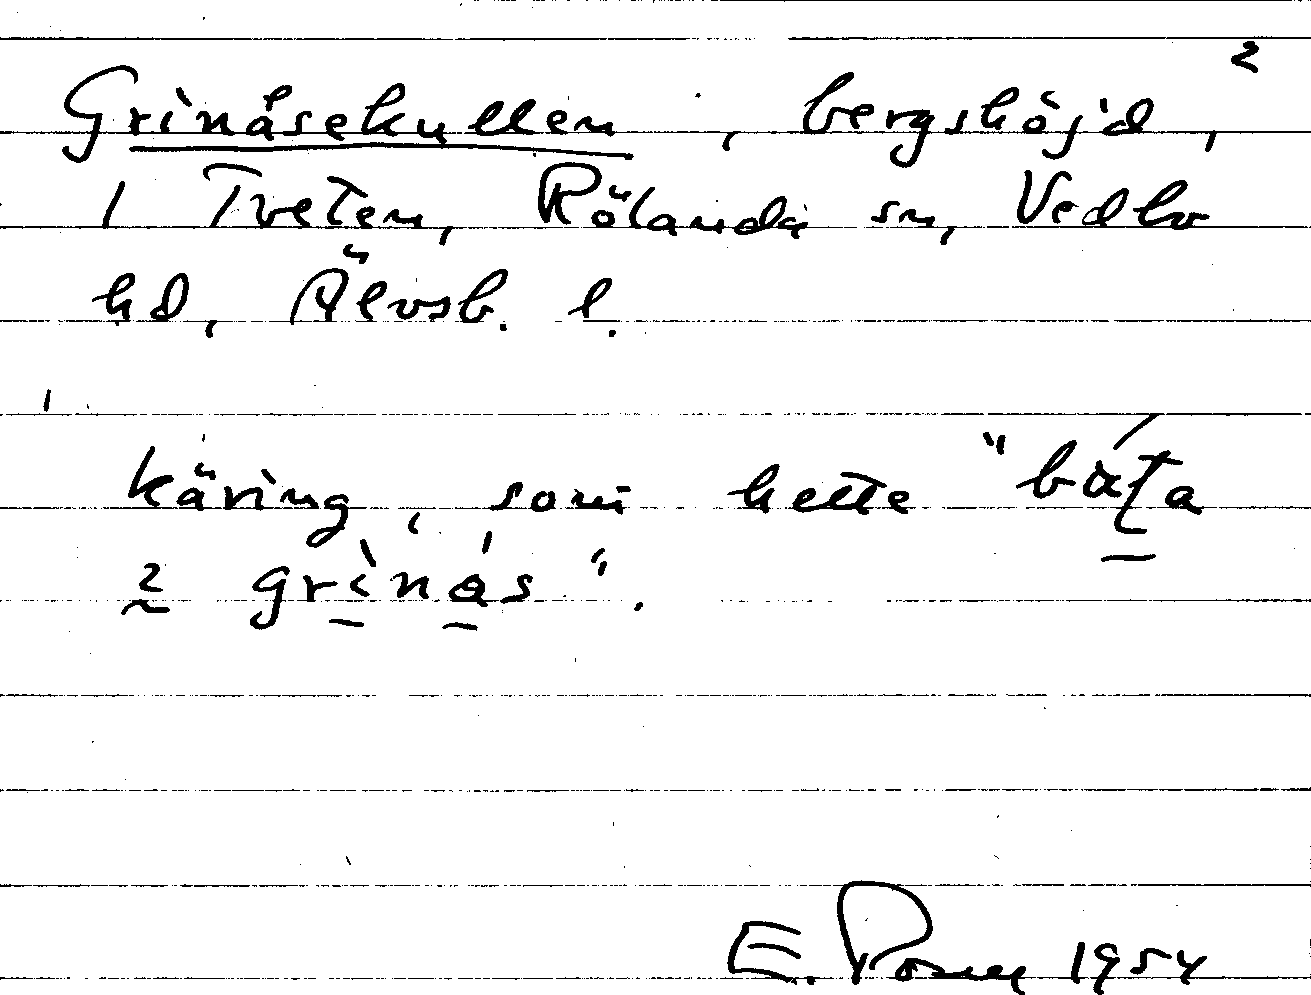 2
Grinåsekullen, bergshöjd,
1 Tveten, Rölanda sn, Vedbo
hd, Älvsb. l.
käring, som hette "báta
2 grìnás".
E. 1954